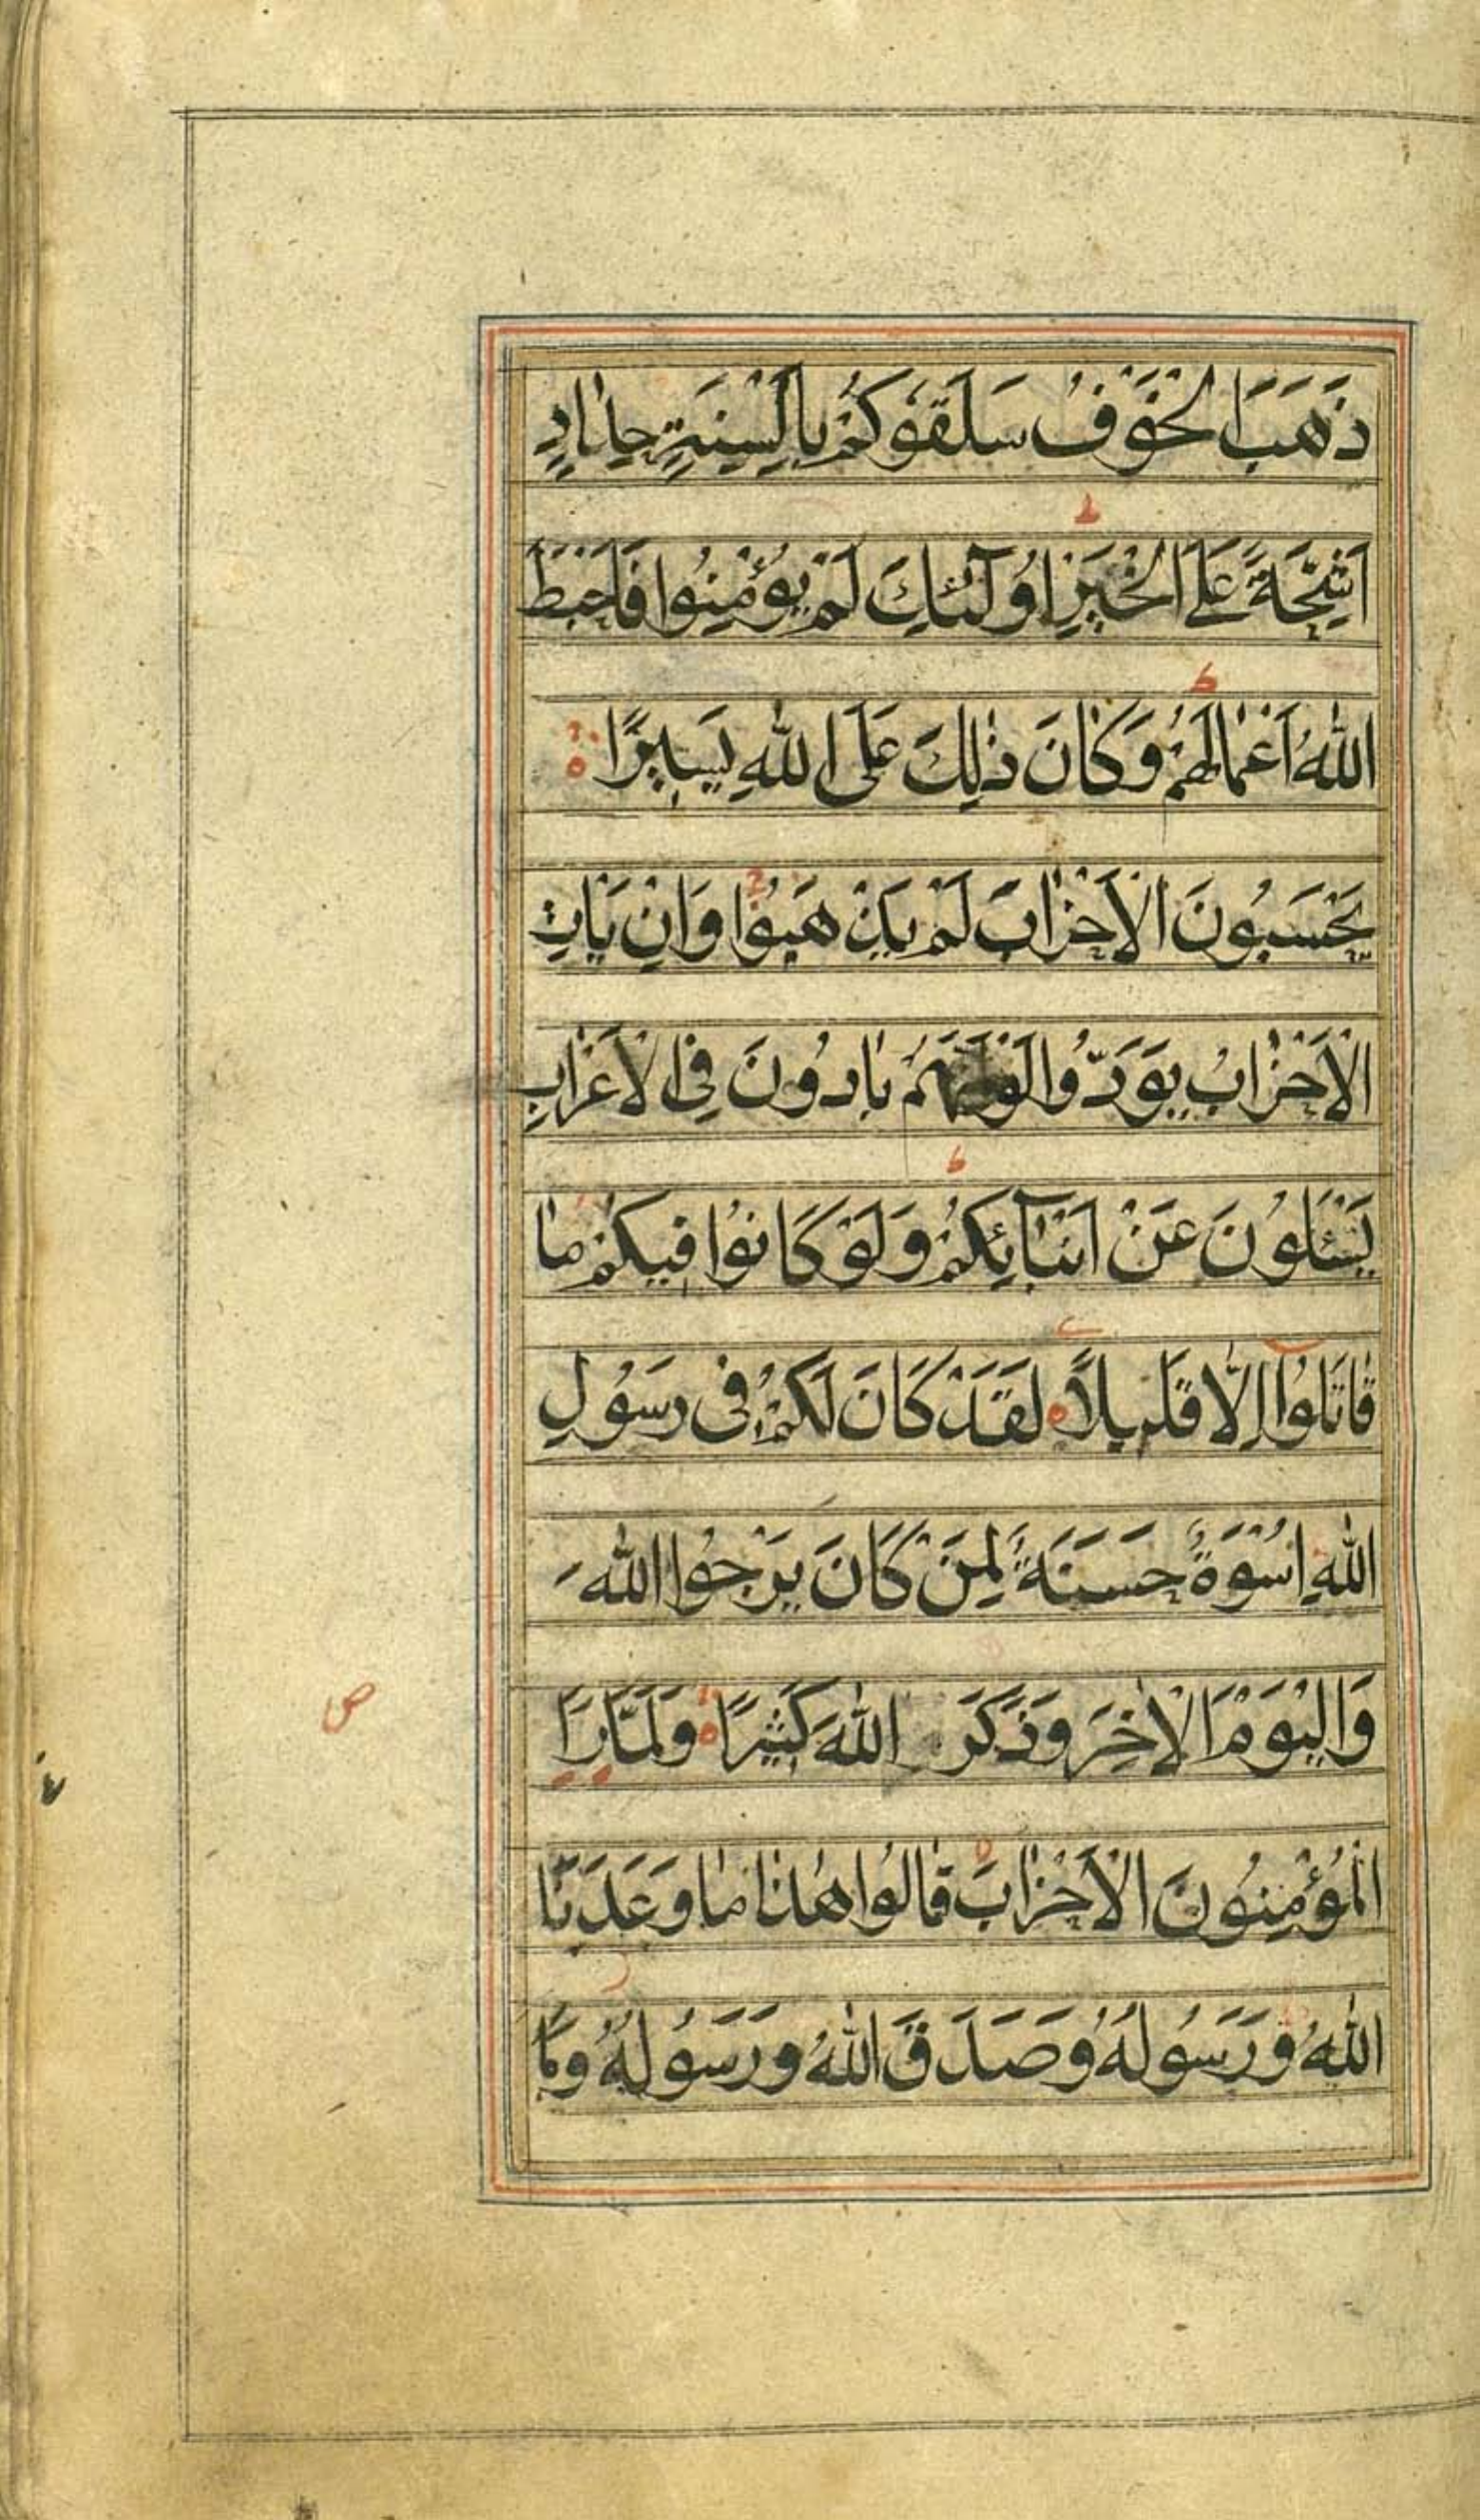 ذَهَبَ الْخَوْفُ سَلَقُوكُمْ بِأَلْسِنَةٍ حِدَادٍ
اَشِحَّةً عَلَى الْخَيْرِ اُولٰٓئِكَ لَمْ يُؤْمِنُوا فَاَحْبَطَ
اللّٰهُ اَعْمَالَهُمْ وَكَانَ ذٰلِكَ عَلَى اللّٰهِ يَسِيرًا
يَحْسَبُونَ الْاَحْزَابَ لَمْ يَذْهَبُوا وَاِنْ يَاْتِ
الْاَحْزَابُ يَوَدُّوا لَوْ اَنَّهُمْ بَادُونَ فِى الْاَعْرَابِ
يَسْئَلُونَ عَنْ اَنْبَآئِكُمْ وَلَوْ كَانُوا فِيكُمْ مَا
قَاتَلُوٓا اِلَّا قَلِيلًا لَقَدْ كَانَ لَكُمْ فِى رَسُولِ
اللّٰهِ اُسْوَةٌ حَسَنَةٌ لِمَنْ كَانَ يَرْجُوا اللّٰهَ
وَالْيَوْمَ الْاٰخِرَ وَذَكَرَ اللّٰهَ كَثِيرًا وَلَمَّا رَاَ
ص
الْمُؤْمِنُونَ الْاَحْزَابَ قَالُوا هٰذَا مَا وَعَدَنَا
اللّٰهُ وَرَسُولُهُ وَصَدَقَ اللّٰهُ وَرَسُولُهُ وَمَا